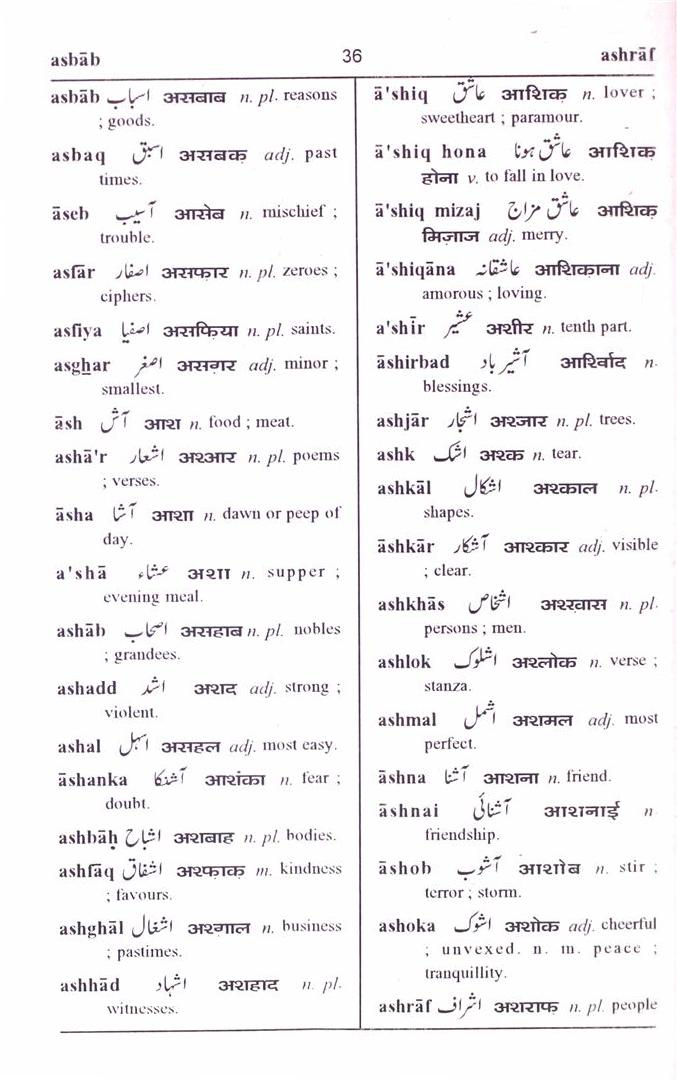 asbāb
36
ashrāf
asbāb اسباب असबाब n. pl. reasons
; goods.
asbaq اسبق असबक adj. past
times.
āseb آسیب आसेब n. mischief ;
trouble.
asfār اصفار असफार n. pl. zeroes ;
ciphers.
asfiya اصفیا असफिया n. pl. saints.
asghar اصغر असग़र adj. minor ;
smallest.
āsh آش आश n. food ; meat.
ashā'r اشعار अश्आर n. pl. poems
; verses.
āsha آشا आशा n. dawn or peep of
day.
a'shā عشاء अशा n. supper ;
evening meal.
ashāb اصحاب असहाब n. pl. nobles
; grandees.
ashadd اشد अशद adj. strong ;
violent.
ashal اسہل असहल adj. most easy.
āshanka آشنکا आशंका n. fear ;
doubt.
ashbāḥ اشباح अशबाह n. pl. bodies.
ashfāq اشفاق अश्फाक़ m. kindness
; favours.
ashghāl اشغال अश्ग़ाल n. business
; pastimes.
ashhād اشہاد अशहाद n. pl.
witnesses.
ā'shiq عاشق आशिक़ n. lover ;
sweetheart ; paramour.
ā'shiq hona عاشق ہونا आशिक़
होना v. to fall in love.
ā'shiq mizaj عاشق مزاج आशिक़
मिज़ाज adj. merry.
ā'shiqāna عاشقانہ आशिकाना adj.
amorous ; loving.
a'shīr عشیر अशीर n. tenth part.
āshirbad آشیر باد आर्शिवाद n.
blessings.
ashjār اشجار अश्जार n. pl. trees.
ashk اشک अश्क n. tear.
ashkāl اشکال अश्काल n. pl.
shapes.
āshkār آشکار आश्कार adj. visible
; clear.
ashkhās اشخاص अश्खास n. pl.
persons ; men.
ashlok اشلوک अश्लोक n. verse ;
stanza.
ashmal اشمل अशमल adj. most
perfect.
āshna آشنا आशना n. friend.
āshnai آشنائی आशनाई n
friendship.
āshob آشوب आशोब n. stir ;
terror ; storm.
ashoka اشوک अशोक adj. cheerful
; unvexed. n. m. peace ;
tranquillity.
ashrāf اشراف अशराफ n. pl. people